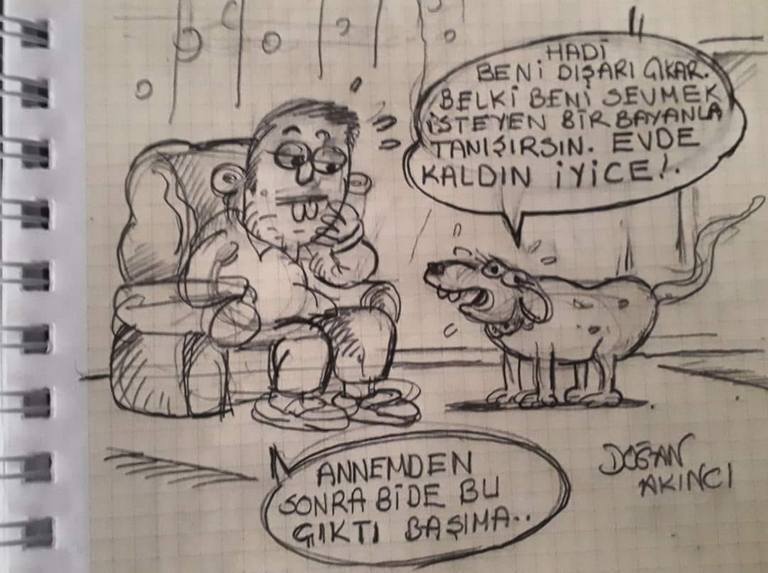 HADİ
BENİ DIŞARI ÇIKAR.
BELKİ BENİ SEVMEK
İSTEYEN BİR BAYANLA
TANIŞIRSIN. EVDE
KALDIN İYİCE!.
ANNEMDEN
SONRA BİDE BU
ÇIKTI BAŞIMA..
DOĞAN
AKINCI